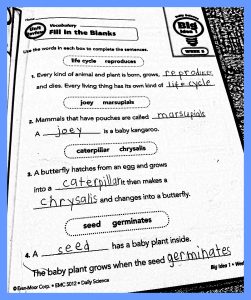 Vocabulary
Fill in the Blanks
Big
Idea
WEEK 2
Use the words in each box to complete the sentences.
life cycle reproduces
1. Every kind of animal and plant is born, grows, reproduces
and dies. Every living thing has its own kind of life cycle
joey marsupials
2. Mammals that have pouches are called marsupials
A joey is a baby kangaroo.
caterpillar chrysalis
3. A butterfly hatches from an egg and grows
into a caterpillar. It then makes a
chrysalis and changes into a butterfly.
seed germinates
4. A seed has a baby plant inside.
The baby plant grows when the seed germinates
© Evan-Moor Corp. • EMC 5012 • Daily Science
Big Idea 1 • Week